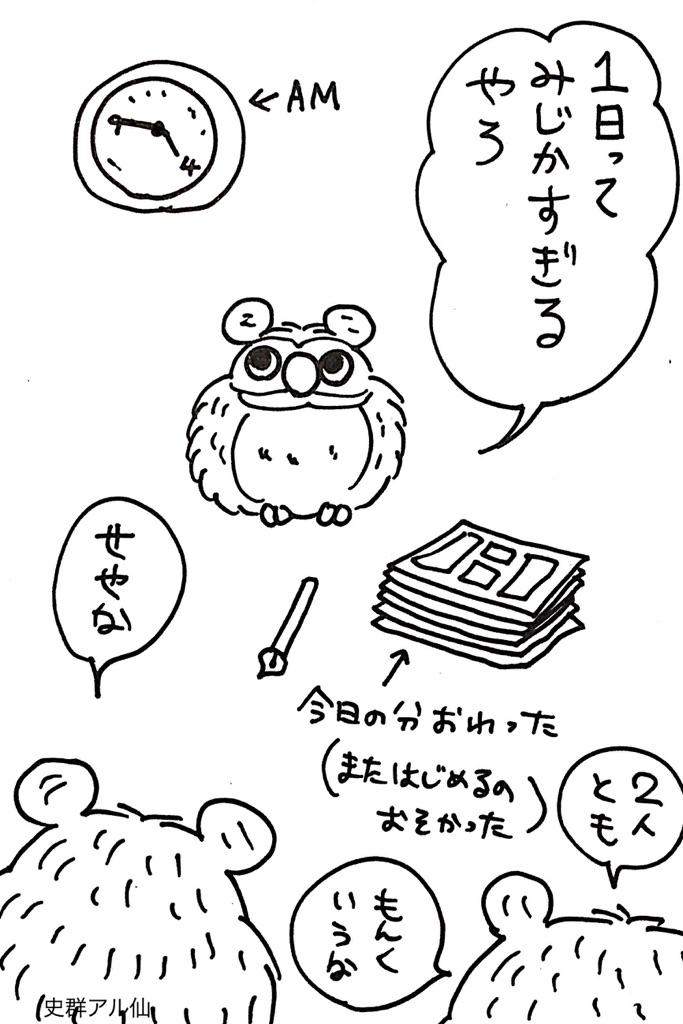 １日って
みじかすぎる
やろ
←AM
9
4
せやな
今日の分おわった
(またはじめるの
おそかった)
2人
とも
もんく
いうな
史群アル仙